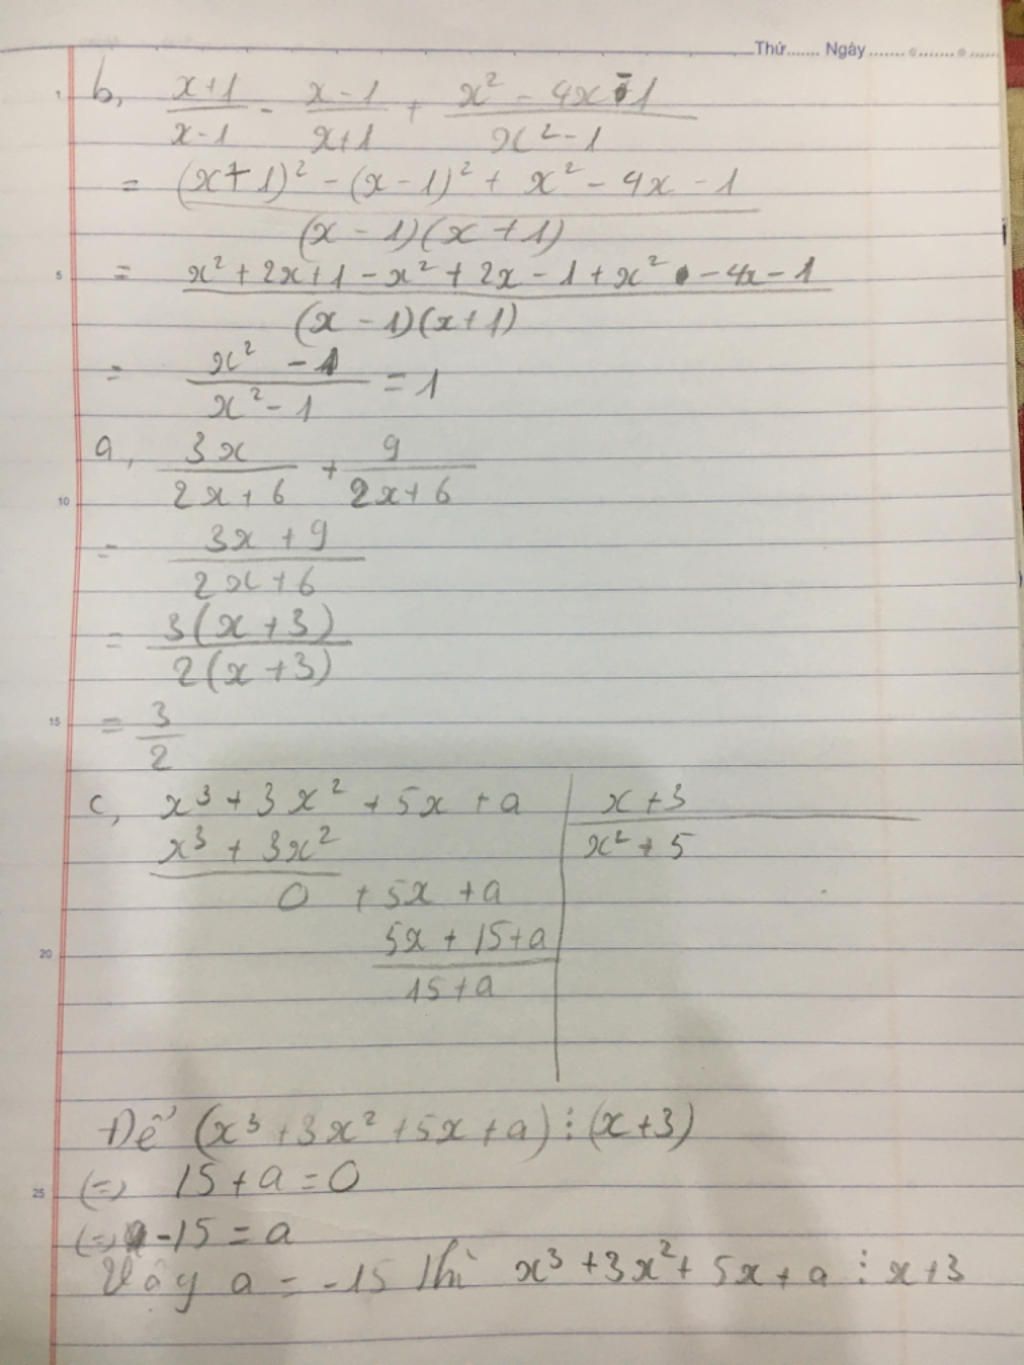 Thứ....... Ngày ....... ........ .....
b, (x+1)/(x-1) - (x-1)/(x+1) + (x² - 4x - 1)/(x² - 1)
= ((x+1)² - (x-1)² + x² - 4x - 1)/((x-1)(x+1))
5 = (x² + 2x + 1 - x² + 2x - 1 + x² - 4x - 1)/((x-1)(x+1))
= (x² - 1)/(x² - 1) = 1
a, 3x/(2x+6) + 9/(2x+6)
10
= (3x + 9)/(2x + 6)
= 3(x+3)/2(x+3)
15 = 3/2
c, x³ + 3x² + 5x + a | x + 3
x³ + 3x² | x² + 5
0 + 5x + a
20 5x + 15 + a
15 + a
Để (x³ + 3x² + 5x + a) ⋮ (x+3)
25 (=) 15 + a = 0
(=) -15 = a
Vậy a = -15 thì x³ + 3x² + 5x + a ⋮ x + 3